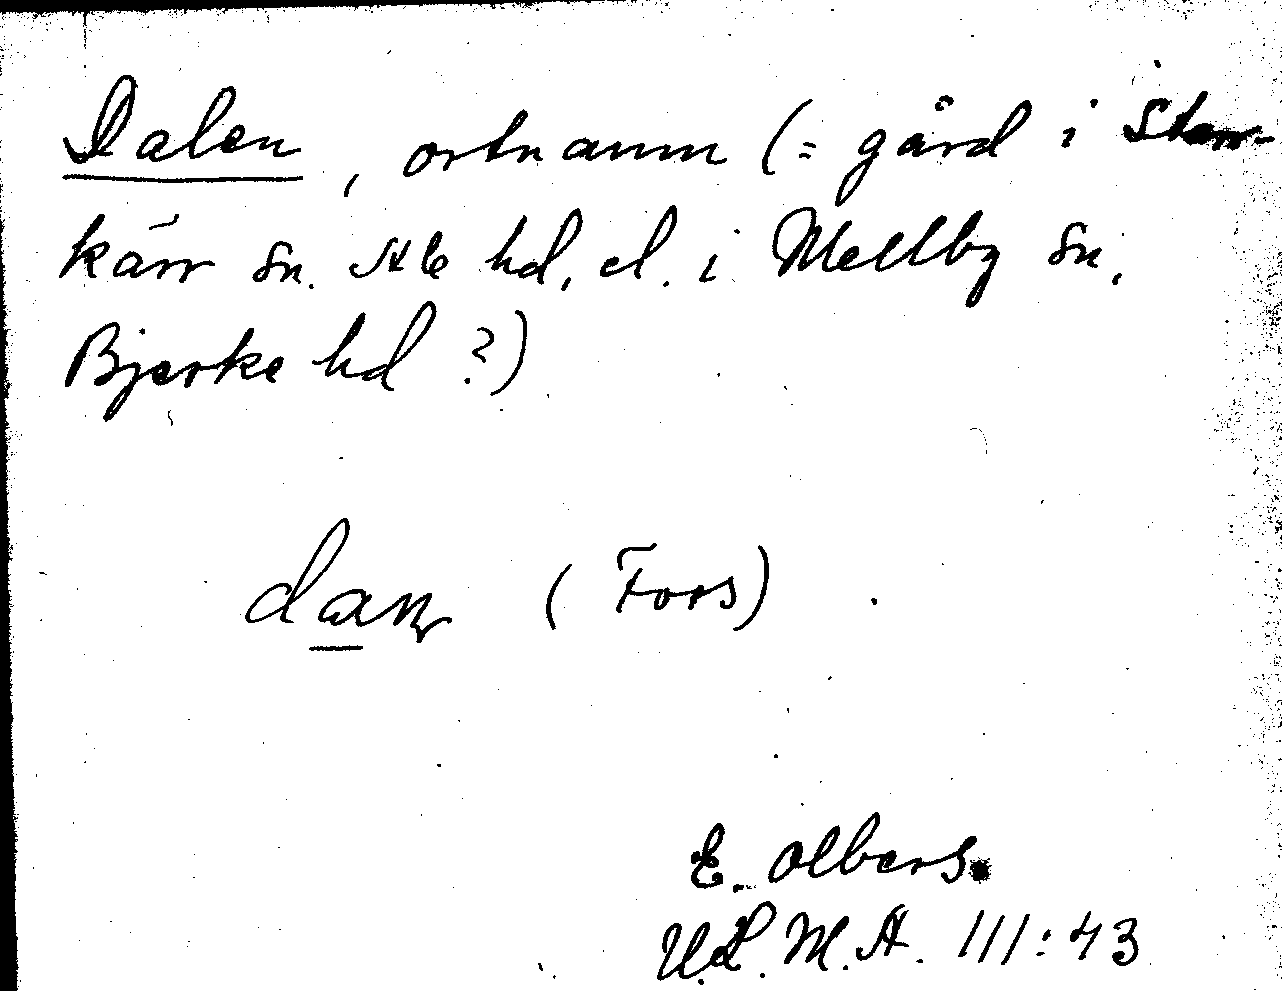 Dalen, ortnamn (= gård i Starr-
kärr sn. Ale hd, el. i Mellby sn,
Bjerke hd ?)
dan (Fors)
E. Olbers.
V.L.M.A. III:43